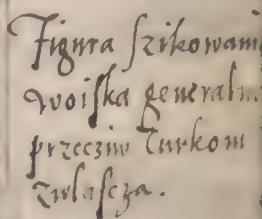 Figura szikowani
woiska generaln
przecziw Turkom
zwlascza.